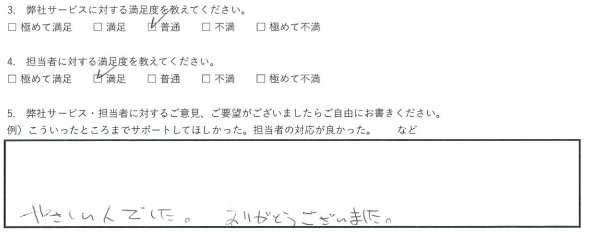 3. 弊社サービスに対する満足度を教えてください。
□ 極めて満足 □ 満足 ☑ 普通 □ 不満 □ 極めて不満
4. 担当者に対する満足度を教えてください。
□ 極めて満足 ☑ 満足 □ 普通 □ 不満 □ 極めて不満
5. 弊社サービス・担当者に対するご意見、ご要望がございましたらご自由にお書きください。
例）こういったところまでサポートしてほしかった。担当者の対応が良かった。 など
やさしい人でした。 ありがとうございました。